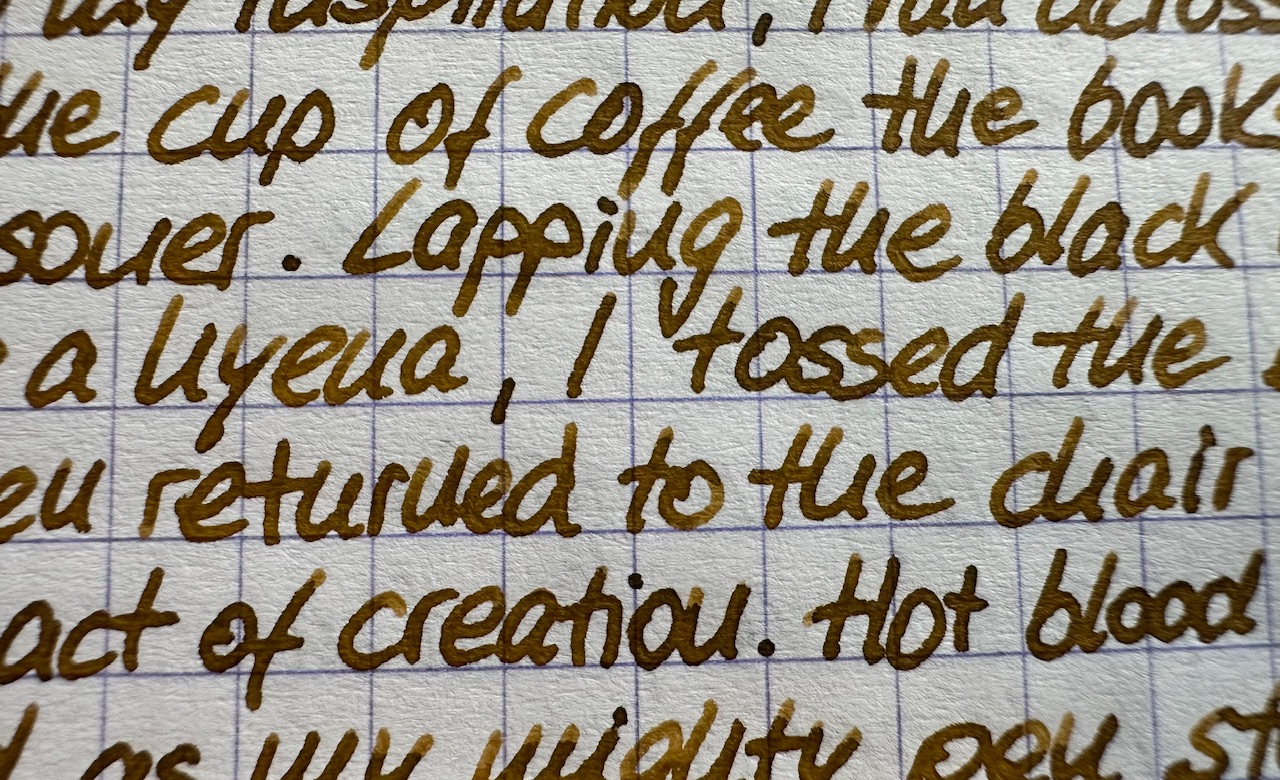 my inspiration, I across
the cup of coffee the book
soner. Lapping the black
a hyena, I tossed the
en returned to the chair
act of creation. Hot blood
as my mighty pen st